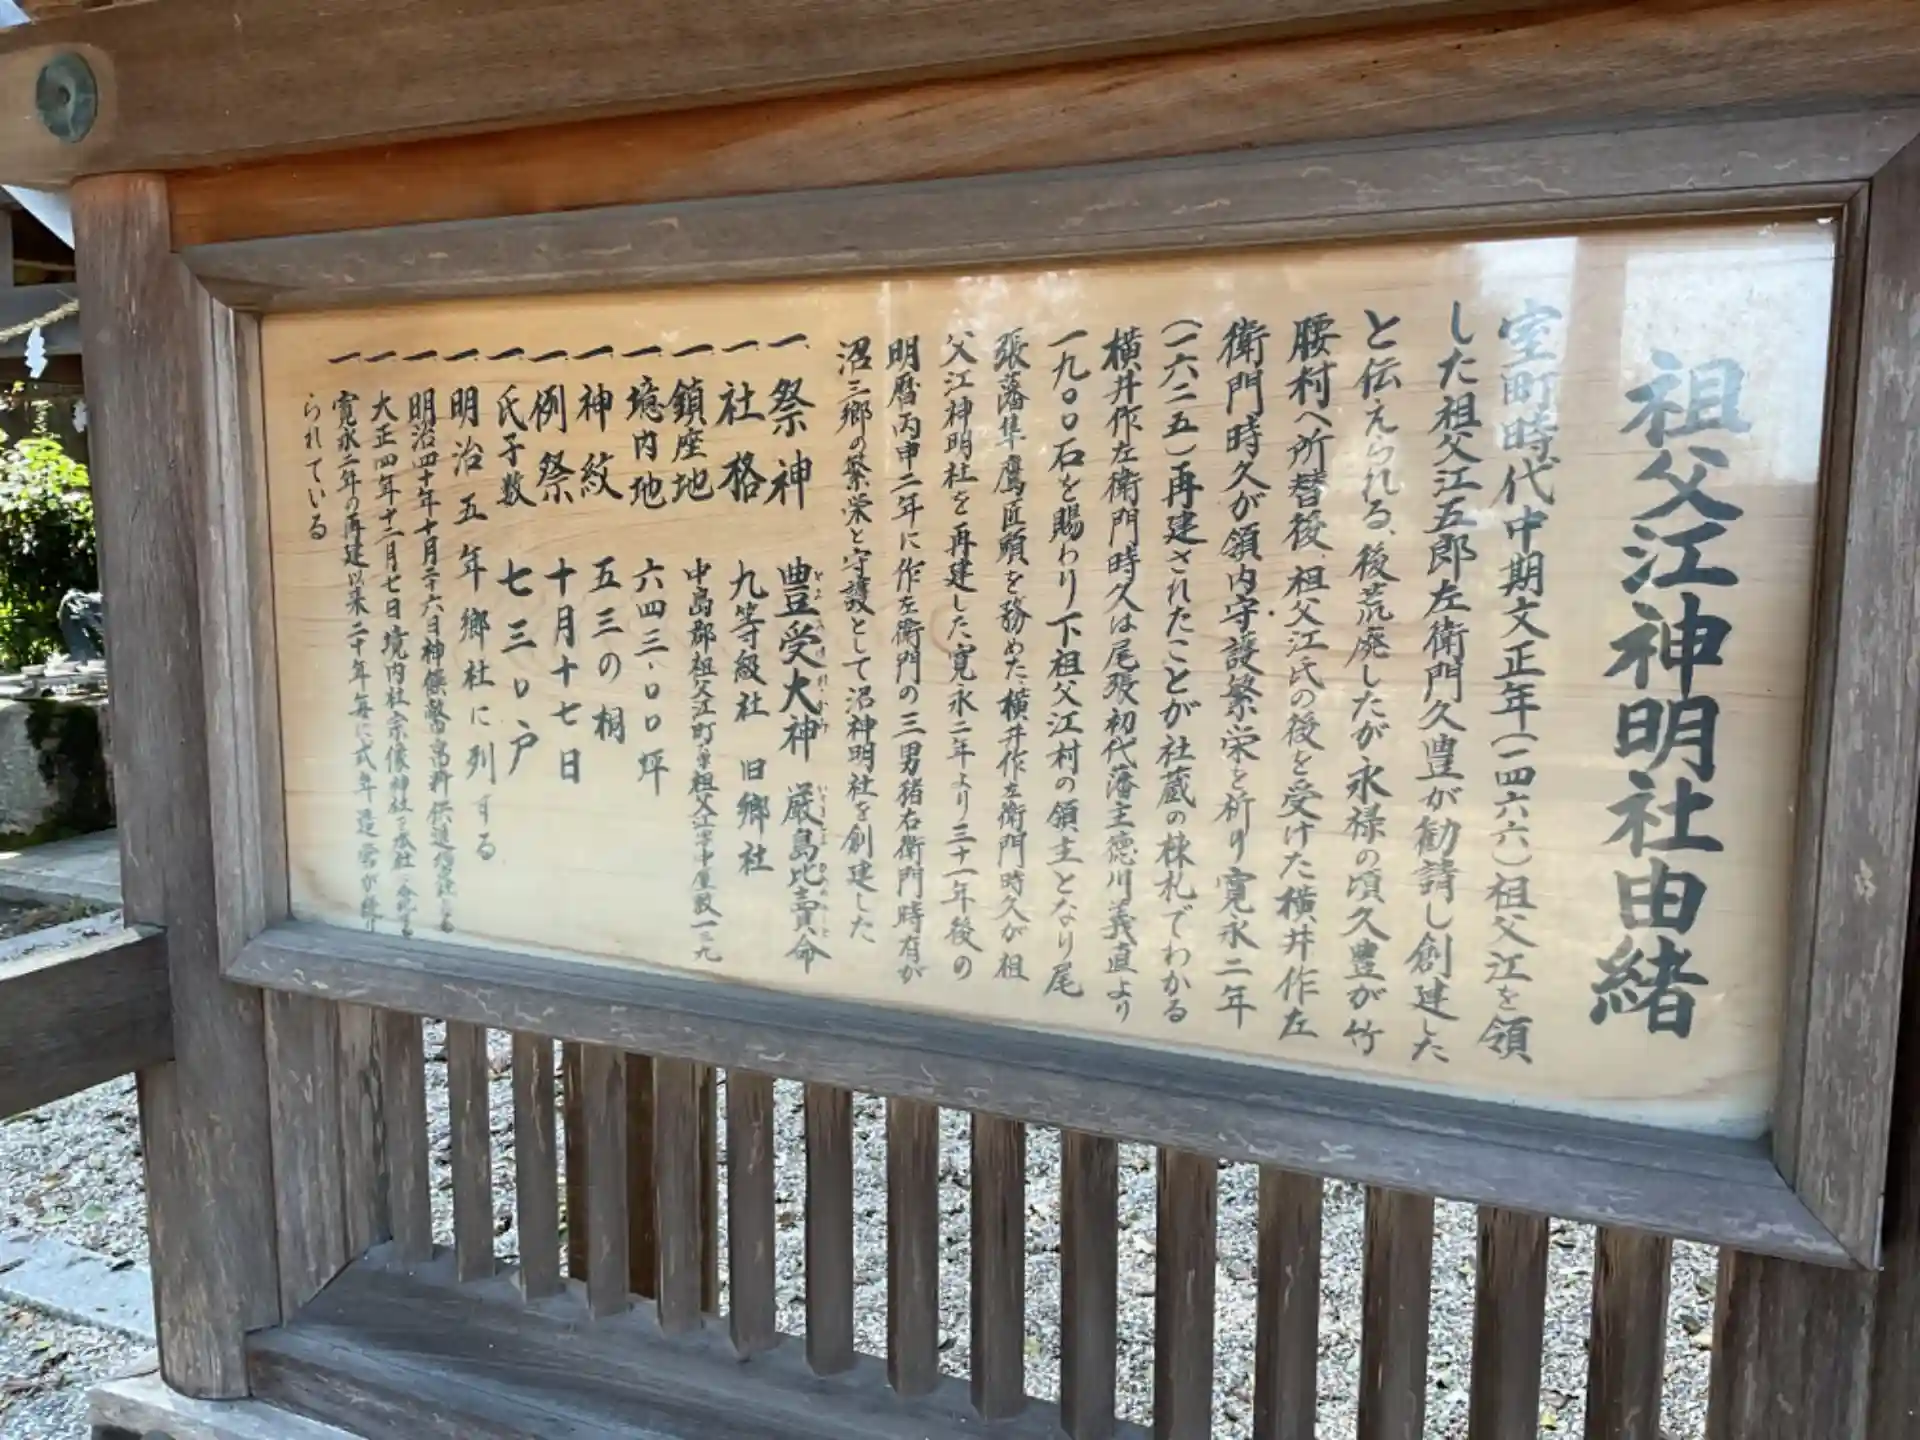 祖父江神明社由緒
室町時代中期文正年(一四六六)祖父江を領
した祖父江五郎左衛門久豊が勧請し創建した
と伝えられる、後荒廃したが永禄の頃久豊が竹
腰村へ所替後、祖父江氏の後を受けた横井作左
衛門時久が領内守護繁栄を祈り寛永二年
(一六二五)再建されたことが社蔵の棟札でわかる
横井作左衛門時久は尾張初代藩主徳川義直より
一九〇〇石を賜わり下祖父江村の領主となり尾
張藩隼鷹匠頭を務めた、横井作左衛門時久が祖
父江神明社を再建した寛永二年より三十一年後の
明暦丙申二年に作左衛門の三男猪右衛門時有が
沼三郷の繁栄と守護として沼神明社を創建した
一 祭神 豊受大神 厳島比売命
一 社格 九等級社 旧郷社
一 鎮座地 中島郡祖父江町
一 境内地 六四三・〇〇坪
一 神紋 五三の桐
一 例祭 十月十七日
一 氏子数 七三〇戸
一 明治五年郷社に列する
一 明治四十年十月二十六日神饌幣帛料供進
一 大正四年十二月七日境内社宗像神社を
一 寛永二年の再建以来二十年毎に式年造営が
られている